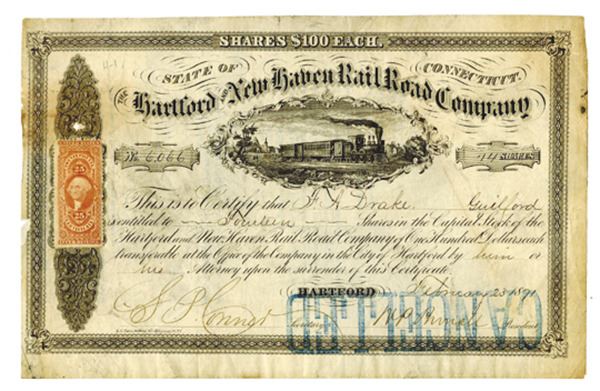 SHARES $100 EACH.
STATE OF CONNECTICUT.
THE Hartford AND New Haven Rail Road Company
No 6,066
14 SHARES
25
25
This is to Certify that F A Drake Guilford
is entitled to Fourteen Shares in the Capital Stock of the
Hartford and New Haven Rail Road Company of One Hundred Dollars each
transferable at the Office of the Company in the City of Hartford by him or
his Attorney upon the surrender of this Certificate.
HARTFORD February 23 1871
Secretary
President
CANCELLED